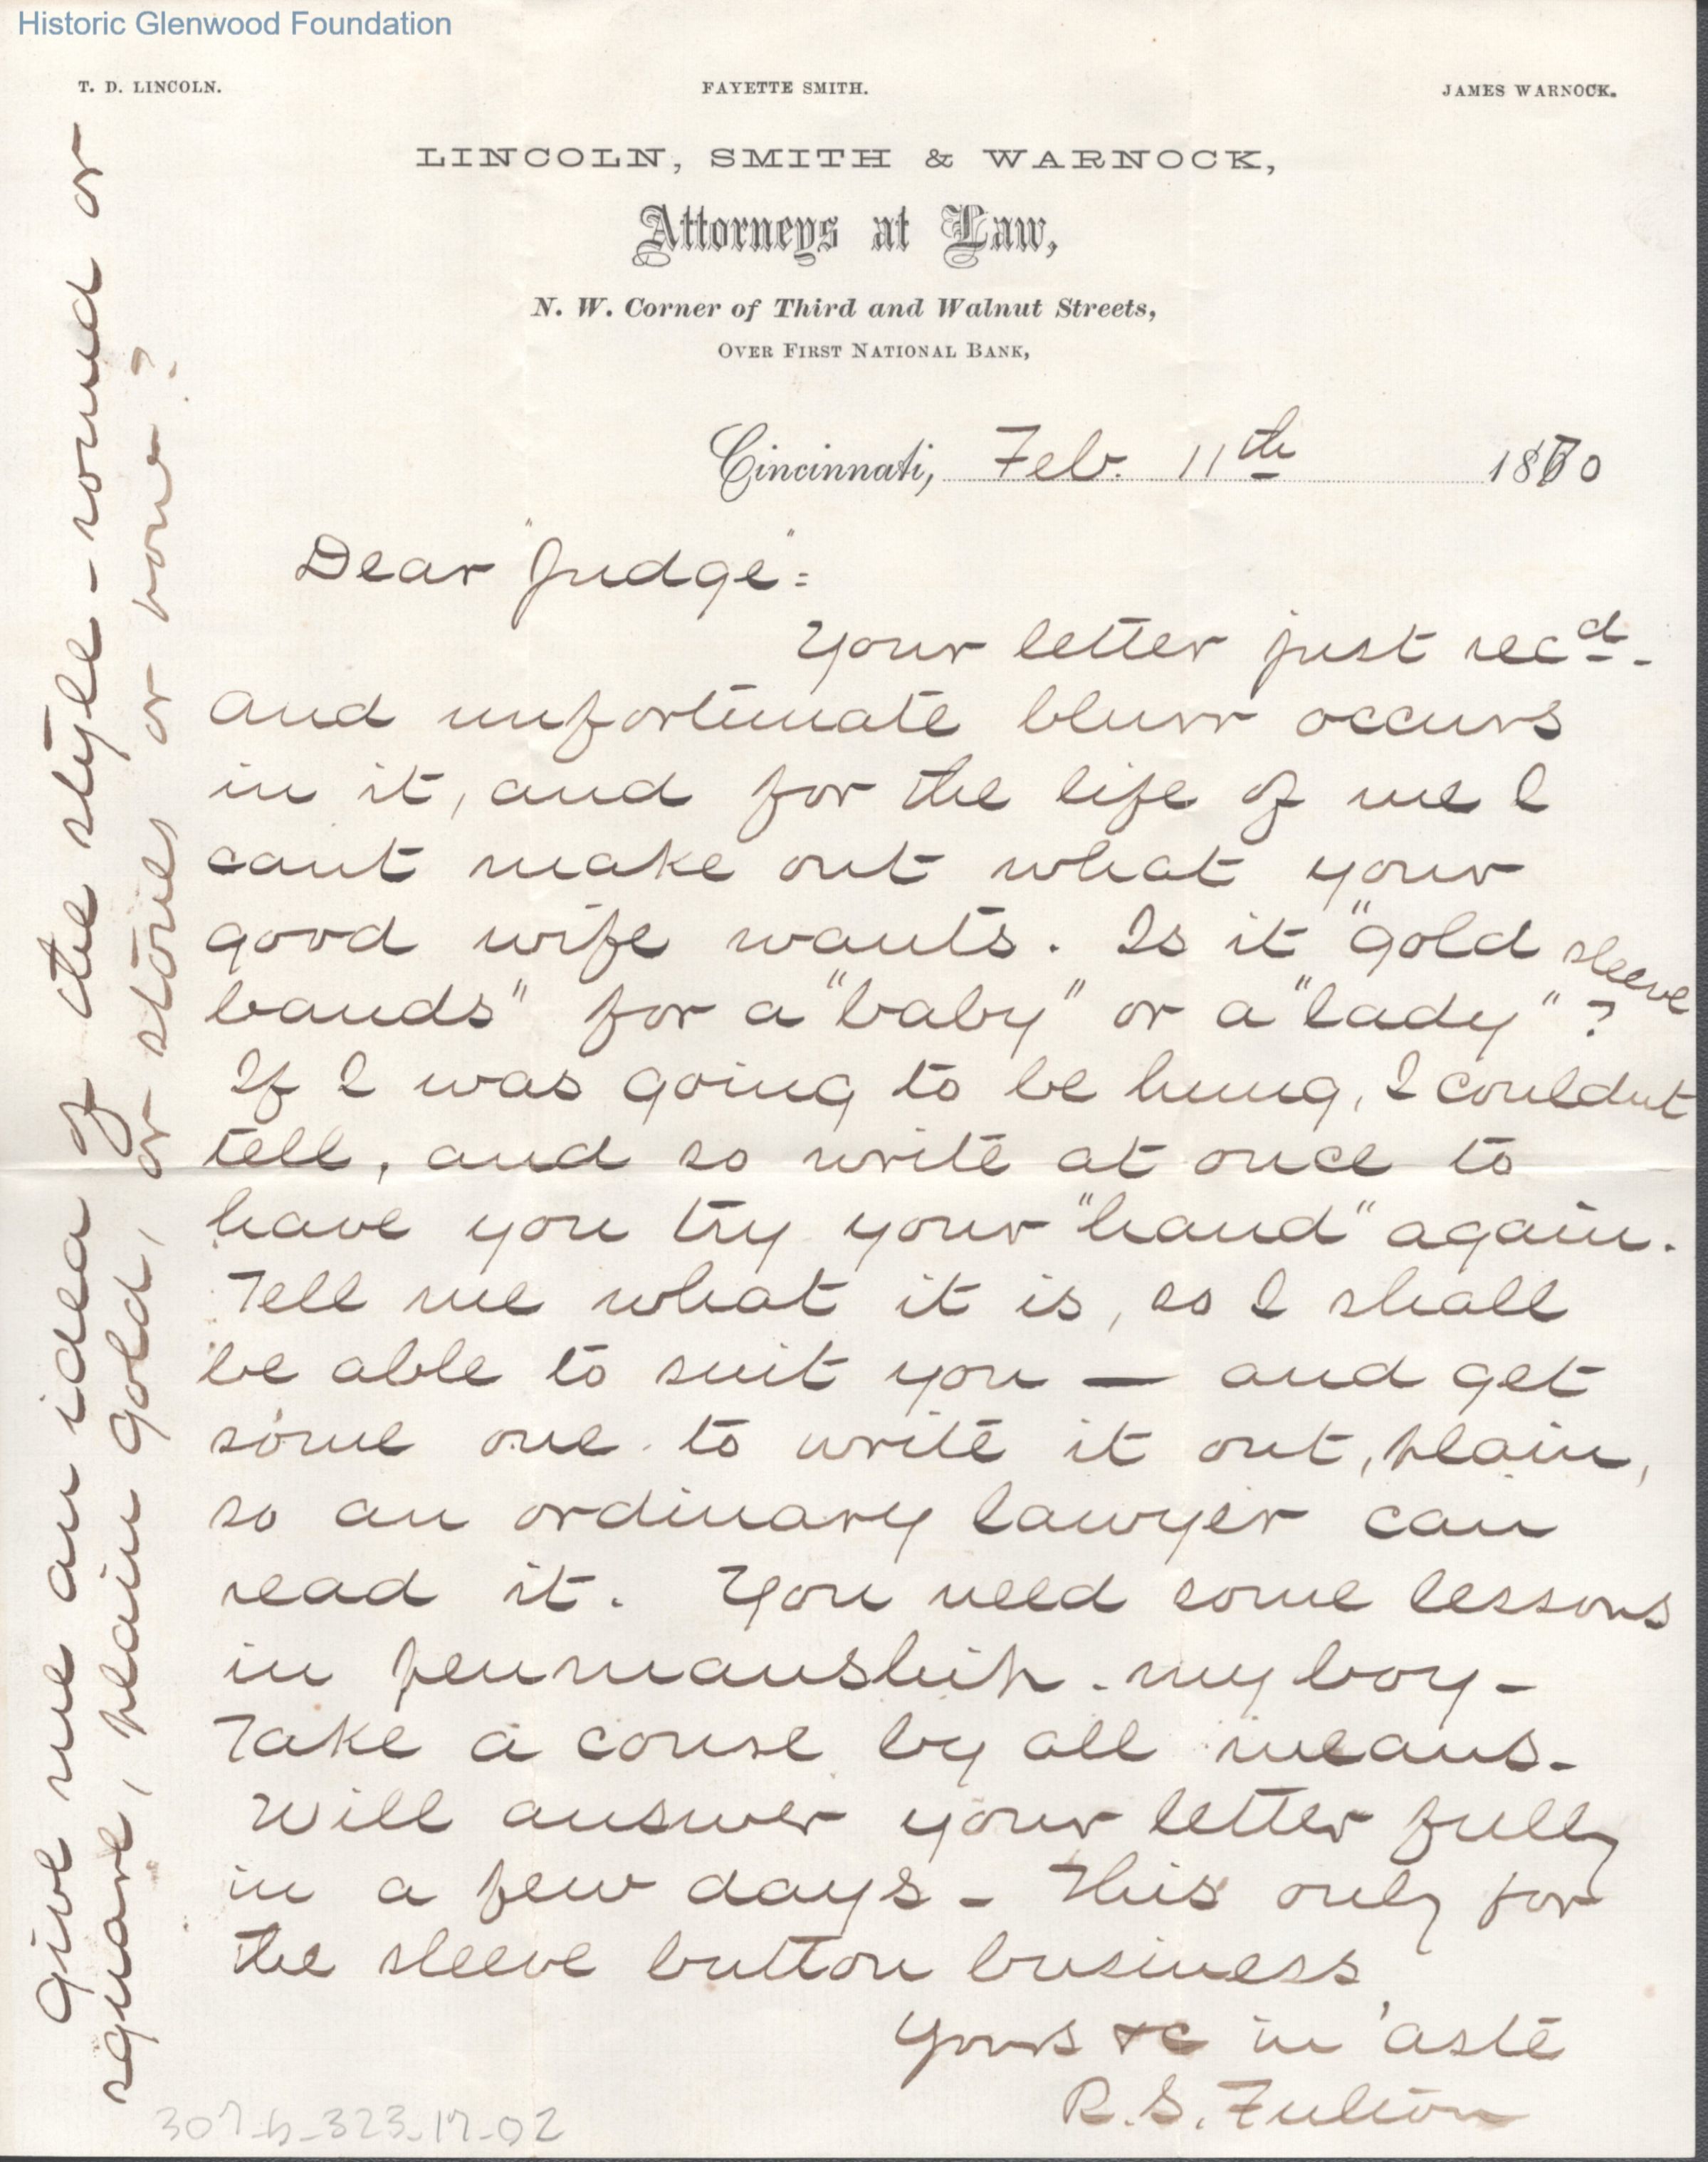 Historic Glenwood Foundation
T. D. LINCOLN. FAYETTE SMITH. JAMES WARNOCK.
LINCOLN, SMITH & WARNOCK,
Attorneys at Law,
N. W. Corner of Third and Walnut Streets,
OVER FIRST NATIONAL BANK,
Cincinnati, Feb. 11th 1880
Dear "Judge":
Your letter just recd.
and unfortunate blurr occurs
in it, and for the life of me I
cant make out what your
good wife wants. Is it "gold sleeve
bands" for a "baby" or a "lady"?
If I was going to be hung, I couldnt
tell, and so write at once to
have you try your "hand" again.
Tell me what it is, so I shall
be able to suit you — and get
some one to write it out, plain,
so an ordinary lawyer can
read it. You need some lessons
in penmanship. my boy -
Take a course by all means -
Will answer your letter fully
in a few days - This only for
the sleeve button business
Yours &c in 'aste
R. S. Fulton
Give me an idea of the style - round or
square, plain gold, or stones or none?
307-b-323-17-02